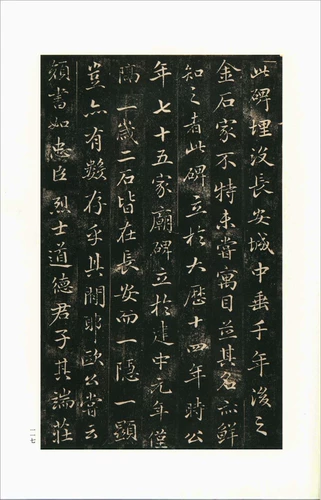 此碑埋没長安城中垂千年後之
金石家不特未嘗寓目並其名亦鮮
知之者此碑立於大歷十四年時公
年七十五家廟碑立於建中元年僅
隔一歲二石皆在長安而一隱一顯
豈亦有數存乎其間耶歐公嘗云
顏書如忠臣烈士道德君子其端莊
一一七